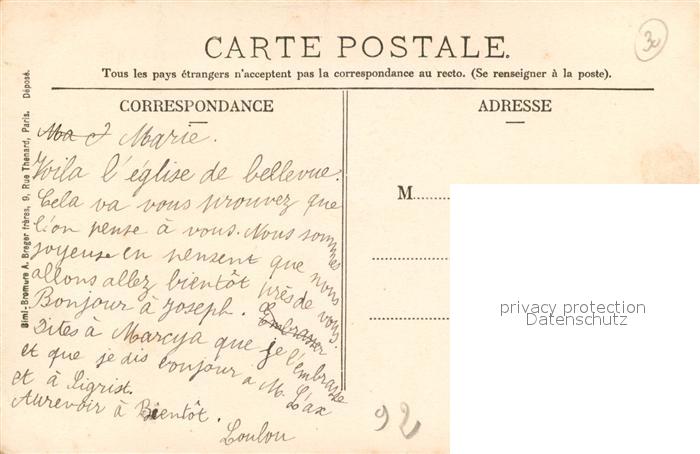 30
CARTE POSTALE.
Tous les pays étrangers n'acceptent pas la correspondance au recto. (Se renseigner à la poste).
CORRESPONDANCE
ADRESSE
Simi-Bromure A. Breger frères, 9, Rue Thenard, Paris. Déposé.
Marie.
Voila l'église de bellevue.
Cela va vous prouvez que
l'on pense à vous. Nous sommes
joyeuse en pensent que nous
allons allez bientôt près de vous
Bonjour à Joseph. Embrasser
Dites à Marcya que je l'embrasse
et que je dis bonjour a M. Lax
et à Sigrist.
Aurevoir à Bientôt.
Loulou
M
92
privacy protection
Datenschutz